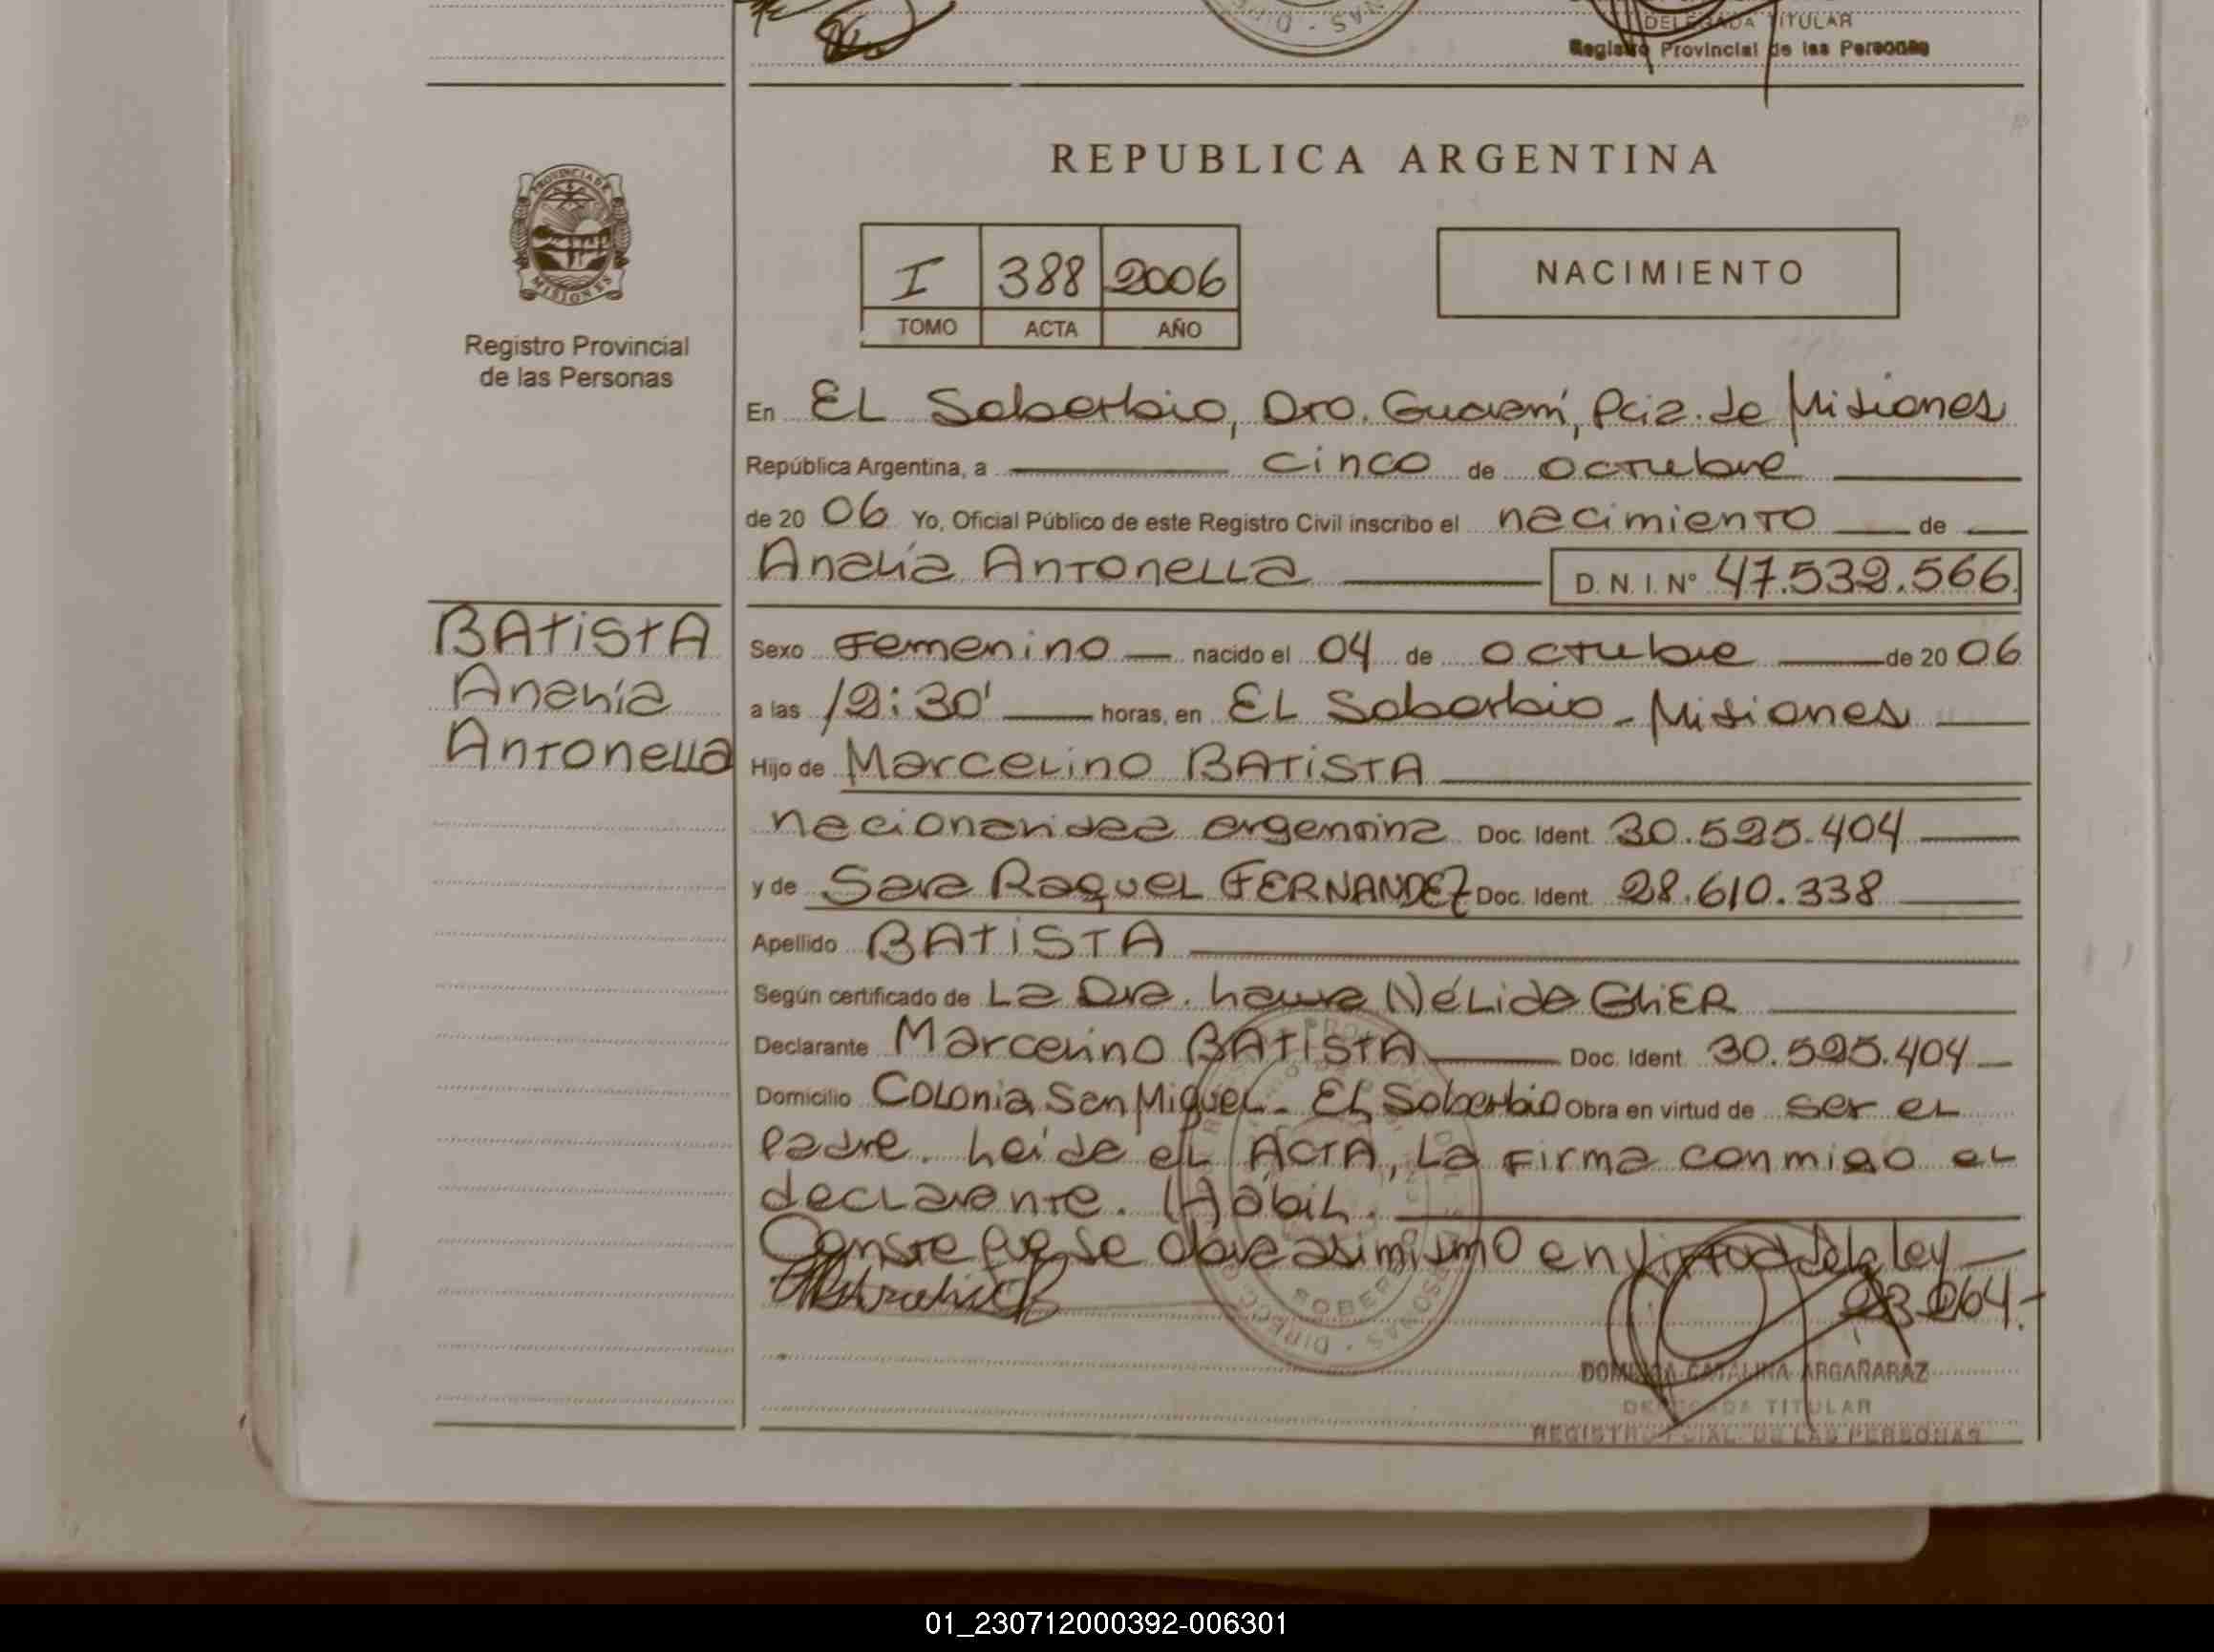 DELEGADA TITULAR
Registro Provincial de las Personas
PROVINCIA DE
MISIONES
Registro Provincial
de las Personas
REPUBLICA ARGENTINA
I 388 2006
TOMO ACTA AÑO
NACIMIENTO
En EL Soberbio, Dro. Guaraní, Pcia. de Misiones
República Argentina, a cinco de octubre
de 20 06 Yo, Oficial Público de este Registro Civil inscribo el nacimiento de
Analía Antonella D. N. I. Nº 47.532.566
BAtistA
Analía
Antonella
Sexo Femenino nacido el 04 de octubre de 20 06
a las 12:30' horas, en EL Soberbio - Misiones
Hijo de Marcelino BATISTA
nacionalidad argentina Doc. Ident. 30.525.404
y de Sara Raquel FERNANDEZ Doc. Ident. 28.610.338
Apellido BATISTA
Según certificado de La Dra. Laura Nélida GhER
Declarante Marcelino BATISTA Doc. Ident. 30.525.404
Domicilio Colonia San Miguel - EL Soberbio Obra en virtud de ser el
Padre. Leída el ACTA, la firma conmigo el
declarante. Hábil.
Conste que se obra asimismo en virtud de la ley
23.264.-
CATALINA ARGAÑARAZ
TITULAR
REGISTRO PCIAL. DE LAS PERSONAS
01_230712000392-006301